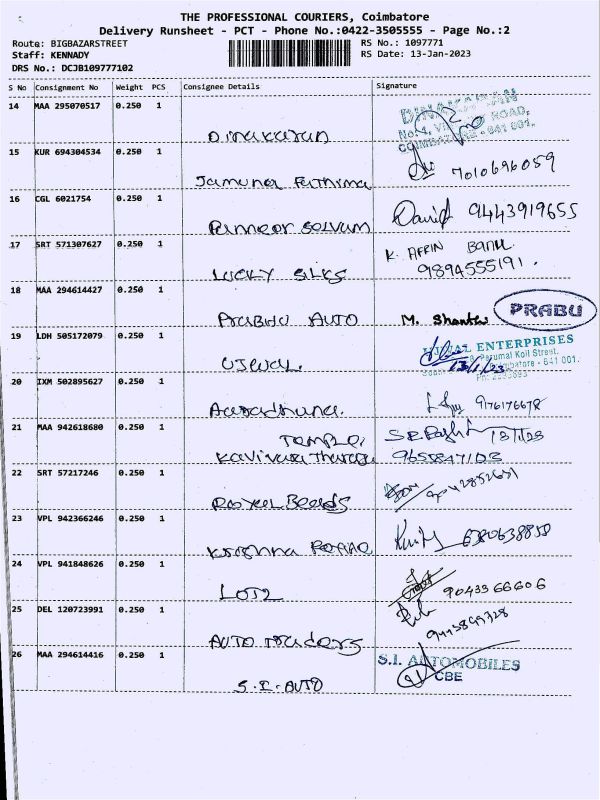 THE PROFESSIONAL COURIERS, Coimbatore
Delivery Runsheet - PCT - Phone No.:0422-3505555 - Page No.:2
Route: BIGBAZARSTREET RS No.: 1097771
Staff: KENNADY RS Date: 13-Jan-2023
DRS No.: DCJB109777102
S No Consignment No Weight PCS Consignee Details Signature
14 MAA 295070517 0.250 1
Dinakaran
15 KUR 694304534 0.250 1
Jamuna Fathima 7010696059
16 CGL 6021754 0.250 1
Panneer Selvam David 9443919655
17 SRT 571307627 0.250 1 K. AFRIN BANU
LUCKY SILKS 9894555191.
18 MAA 294614427 0.250 1
Prabhu AUTO M. Shanthi PRABU
19 LDH 505172079 0.250 1 UJWAL ENTERPRISES
Perumal Koil Street,
Ujwal. 13/1/23 641 001.
20 IXM 502895627 0.250 1
Aaradhana. 9176176678
21 MAA 942618680 0.250 1
Temple 13/1/23
22 SRT 57217246 0.250 1
Royal Beads
23 VPL 942366246 0.250 1
Krishna 6380638858
24 VPL 941848626 0.250 1
9043366606
25 DEL 120723991 0.250 1
AUTO Traders
26 MAA 294614416 0.250 1 S.I. AUTOMOBILES
CBE
S.I. AUTO